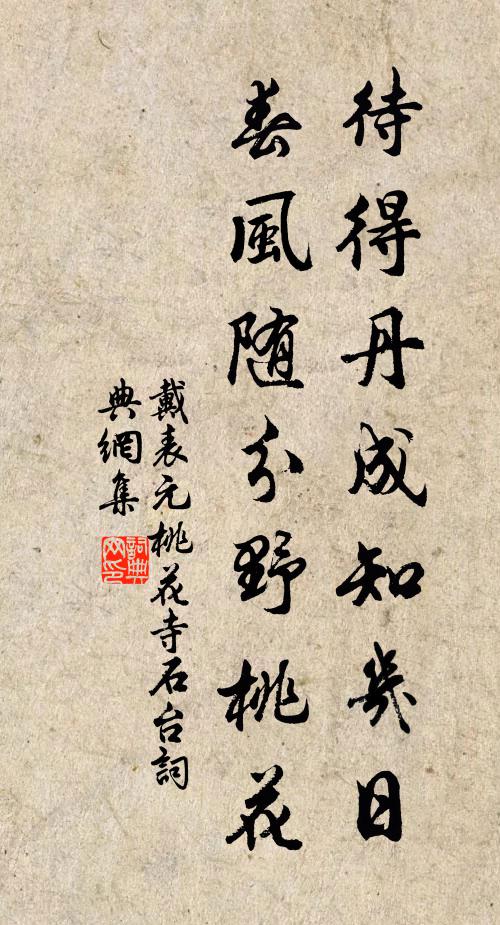 待得丹成知幾日
春風随分野桃花
戴表元桃花寺石台詞
典網集
詞典
网印